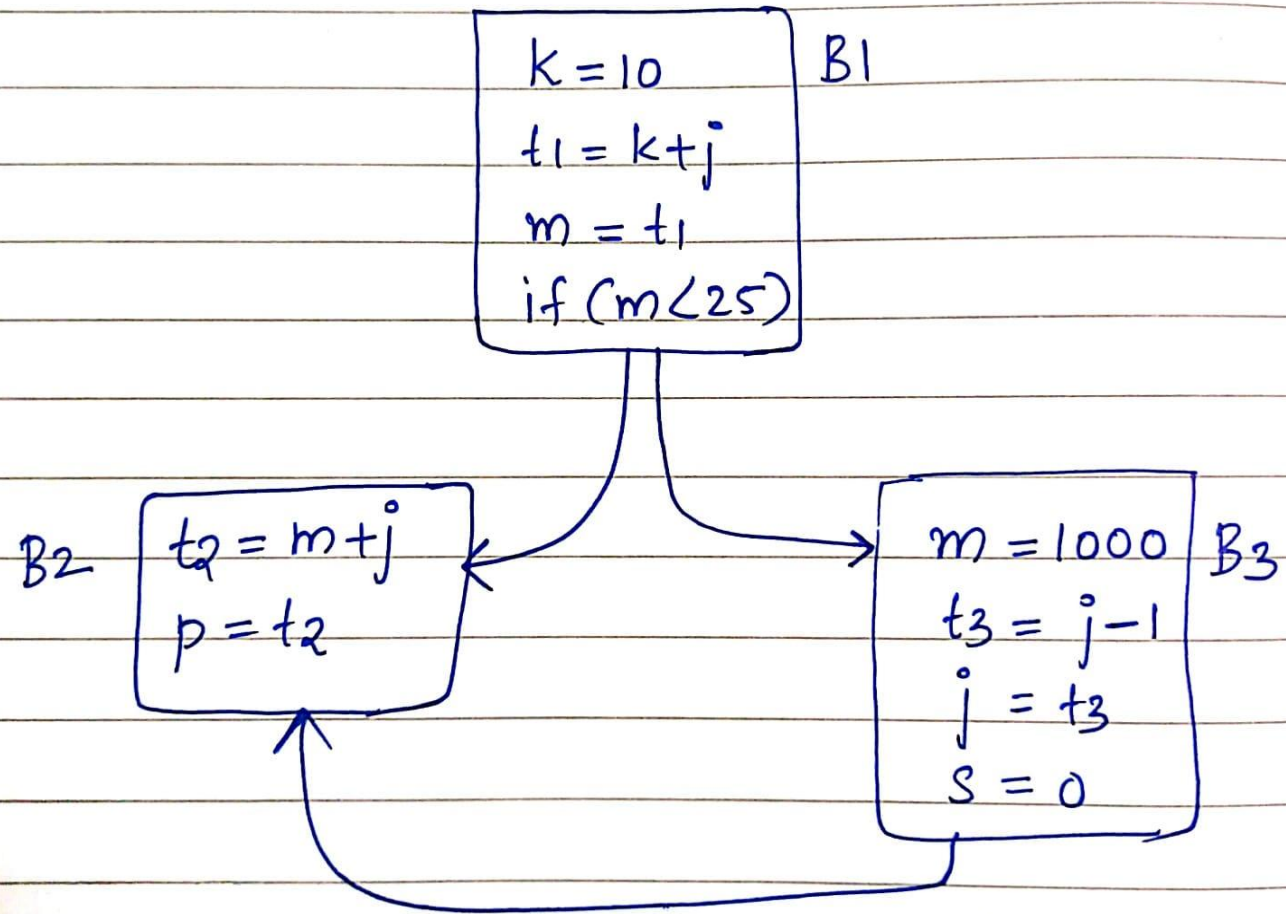 k = 10
B1
t1 = k+j
m = t1
if (m<25)
B2
t2 = m+j
p = t2
m = 1000
B3
t3 = j-1
j = t3
s = 0